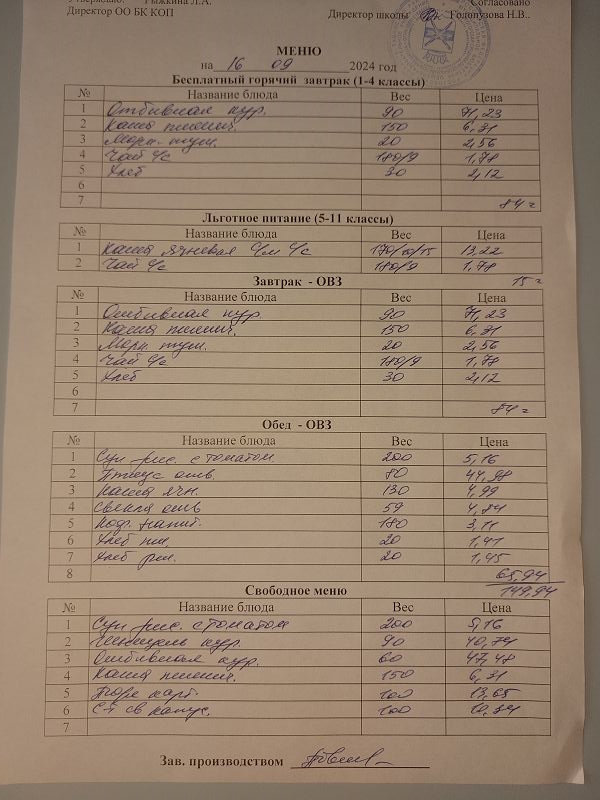 Утверждаю: Рыжкина Л.А. Согласовано
Директор ОО БК КОП Директор школы Голопузова Н.В..
МЕНЮ
на 16 09 2024 год
Бесплатный горячий завтрак (1-4 классы)
№ Название блюда Вес Цена
1 Отбивная кур. 90 71,23
2 Каша пшенич. 150 6,31
3 Морк. туш. 20 2,56
4 Чай с/с 180/9 1,78
5 Хлеб 30 2,12
6
7 84=
Льготное питание (5-11 классы)
№ Название блюда Вес Цена
1 Каша ячневая с/м с/с 170/10/15 13,22
2 Чай с/с 180/9 1,78
15=
Завтрак - ОВЗ
№ Название блюда Вес Цена
1 Отбивная кур. 90 71,23
2 Каша пшенич. 150 6,31
3 Морк. туш. 20 2,56
4 Чай с/с 180/9 1,78
5 Хлеб 30 2,12
6
7 84=
Обед - ОВЗ
№ Название блюда Вес Цена
1 Суп рис. с томатом 200 5,16
2 Птица отв. 80 44,98
3 Каша ячн. 130 4,99
4 Свекла отв 59 4,84
5 Коф. напит. 180 3,11
6 Хлеб пш. 20 1,41
7 Хлеб рж. 20 1,45
8 65,94
149,94
Свободное меню
№ Название блюда Вес Цена
1 Суп рис. с томатом 200 5,16
2 Шницель кур. 90 40,74
3 Отбивная кур. 60 47,48
4 Каша пшенич. 150 6,31
5 Пюре карт. 100 13,65
6 С-т св капус. 100 12,34
7
Зав. производством